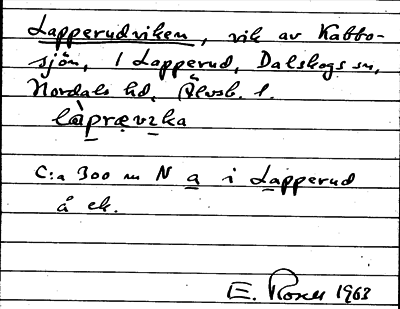 Lapperudviken, vik av Kabbo-
sjön, 1 Lapperud, Dalskogs sn,
Nordals hd, Älvsb. l.
là̱prẹvɪka
C:a 300 m N a i Lapperud
å ek.
E. Rosell 1963